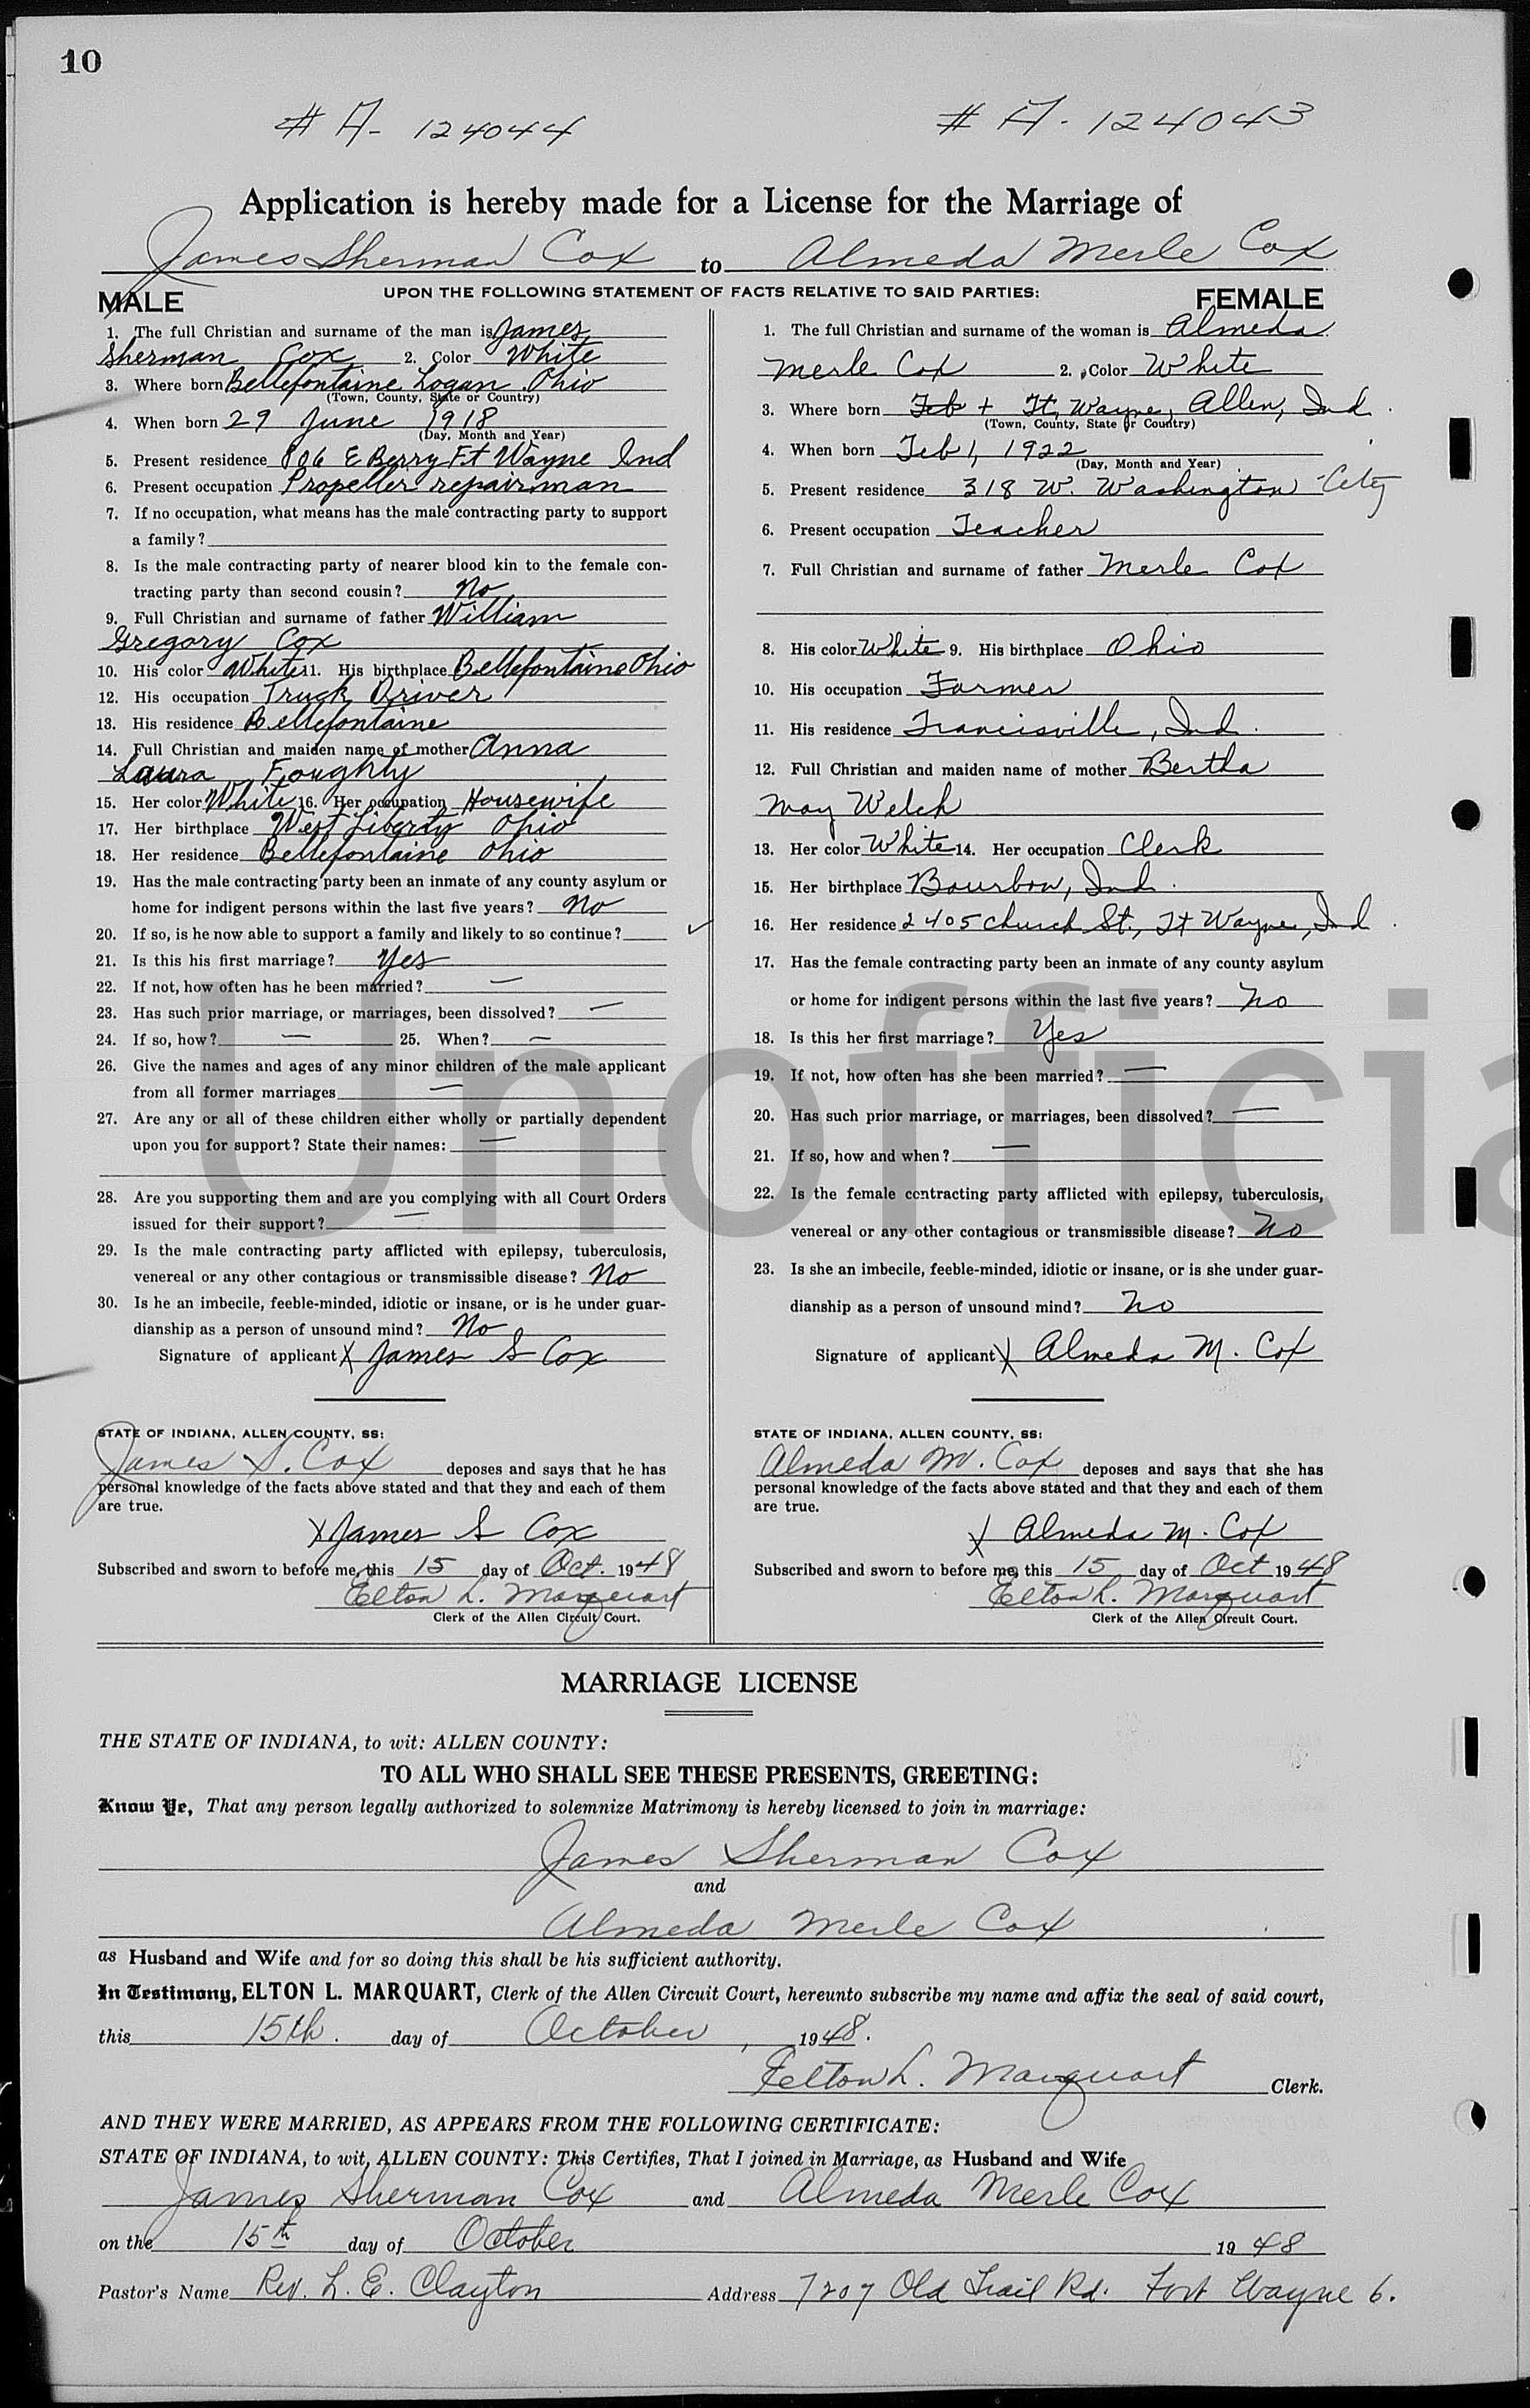 10
# A- 124044
# A- 124043
Application is hereby made for a License for the Marriage of
James Sherman Cox to Almeda Merle Cox
UPON THE FOLLOWING STATEMENT OF FACTS RELATIVE TO SAID PARTIES:
MALE
1. The full Christian and surname of the man is James
Sherman Cox 2. Color White
3. Where born Bellefontaine Logan Ohio
(Town, County, State or Country)
4. When born 29 June 1918
(Day, Month and Year)
5. Present residence 806 E Berry Ft Wayne Ind
6. Present occupation Propeller repairman
7. If no occupation, what means has the male contracting party to support
a family?
8. Is the male contracting party of nearer blood kin to the female con-
tracting party than second cousin? No
9. Full Christian and surname of father William
Gregory Cox
10. His color White 11. His birthplace Bellefontaine Ohio
12. His occupation Truck Driver
13. His residence Bellefontaine
14. Full Christian and maiden name of mother Anna
Laura Foughty
15. Her color White 16. Her occupation Housewife
17. Her birthplace West Liberty Ohio
18. Her residence Bellefontaine Ohio
19. Has the male contracting party been an inmate of any county asylum or
home for indigent persons within the last five years? No
20. If so, is he now able to support a family and likely to so continue? ✓
21. Is this his first marriage? Yes
22. If not, how often has he been married? —
23. Has such prior marriage, or marriages, been dissolved? —
24. If so, how? — 25. When? —
26. Give the names and ages of any minor children of the male applicant
from all former marriages —
27. Are any or all of these children either wholly or partially dependent
upon you for support? State their names: —
28. Are you supporting them and are you complying with all Court Orders
issued for their support? —
29. Is the male contracting party afflicted with epilepsy, tuberculosis,
venereal or any other contagious or transmissible disease? No
30. Is he an imbecile, feeble-minded, idiotic or insane, or is he under guar-
dianship as a person of unsound mind? No
Signature of applicant X James S Cox
STATE OF INDIANA, ALLEN COUNTY, SS:
James S. Cox deposes and says that he has
personal knowledge of the facts above stated and that they and each of them
are true.
X James S Cox
Subscribed and sworn to before me, this 15 day of Oct. 1948
Elton L. Marquart
Clerk of the Allen Circuit Court.
FEMALE
1. The full Christian and surname of the woman is Almeda
Merle Cox 2. Color White
3. Where born Feb + Ft. Wayne, Allen, Ind.
(Town, County, State or Country)
4. When born Feb 1, 1922
(Day, Month and Year)
5. Present residence 318 W. Washington City
6. Present occupation Teacher
7. Full Christian and surname of father Merle Cox
8. His color White 9. His birthplace Ohio
10. His occupation Farmer
11. His residence Francisville, Ind.
12. Full Christian and maiden name of mother Bertha
May Welch
13. Her color White 14. Her occupation Clerk
15. Her birthplace Bourbon, Ind.
16. Her residence 2405 Church St., Ft Wayne, Ind.
17. Has the female contracting party been an inmate of any county asylum
or home for indigent persons within the last five years? No
18. Is this her first marriage? Yes
19. If not, how often has she been married? —
20. Has such prior marriage, or marriages, been dissolved? —
21. If so, how and when? —
22. Is the female contracting party afflicted with epilepsy, tuberculosis,
venereal or any other contagious or transmissible disease? No
23. Is she an imbecile, feeble-minded, idiotic or insane, or is she under guar-
dianship as a person of unsound mind? No
Signature of applicant X Almeda M. Cox
STATE OF INDIANA, ALLEN COUNTY, SS:
Almeda M. Cox deposes and says that she has
personal knowledge of the facts above stated and that they and each of them
are true.
X Almeda M. Cox
Subscribed and sworn to before me, this 15 day of Oct 1948
Elton L. Marquart
Clerk of the Allen Circuit Court.
Unofficia
MARRIAGE LICENSE
THE STATE OF INDIANA, to wit: ALLEN COUNTY:
TO ALL WHO SHALL SEE THESE PRESENTS, GREETING:
Know Ye, That any person legally authorized to solemnize Matrimony is hereby licensed to join in marriage:
James Sherman Cox
and
Almeda Merle Cox
as Husband and Wife and for so doing this shall be his sufficient authority.
In Testimony, ELTON L. MARQUART, Clerk of the Allen Circuit Court, hereunto subscribe my name and affix the seal of said court,
this 15th. day of October, 1948.
Elton L. Marquart Clerk.
AND THEY WERE MARRIED, AS APPEARS FROM THE FOLLOWING CERTIFICATE:
STATE OF INDIANA, to wit, ALLEN COUNTY: This Certifies, That I joined in Marriage, as Husband and Wife
James Sherman Cox and Almeda Merle Cox
on the 15th day of October 1948
Pastor's Name Rev. L. E. Clayton Address 7207 Old Trail Rd. Fort Wayne 6.